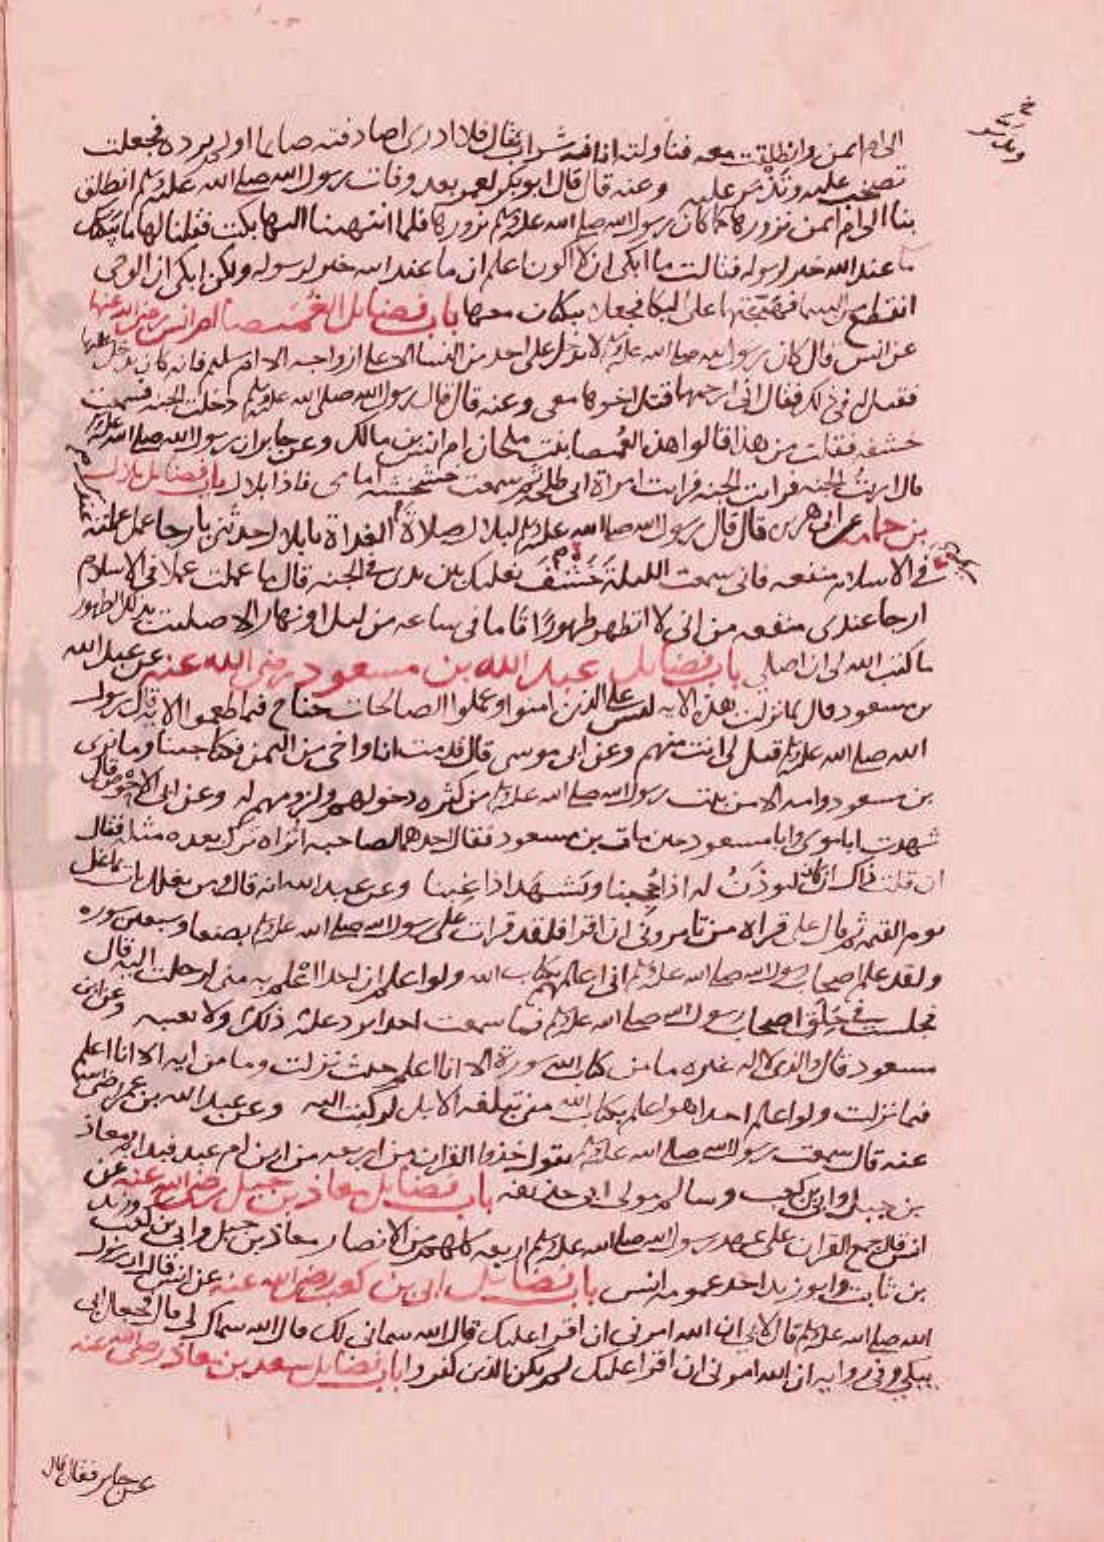 الى ام ايمن وانطلقت معه فناولته انا فيه شراب فقال فلا ادرى اصادفته صايما اولم يرده فجعلت
تصخب عليه وتذمر عليه وعنه قال قال ابو بكر لعمر بعد وفات رسول الله صلى الله عليه وسلم انطلق
بنا الى ام ايمن نزورها كما كان رسول الله صلى الله عليه وسلم يزورها فلما انتهينا اليها بكت فقلنا لها ما يبكيك
ما عند الله خير لرسوله فقالت ما ابكى ان لا اكون اعلم ان ما عند الله خير لرسوله ولكن ابكى ان الوحى
انقطع من السما فهيجتهما على البكا فجعلا يبكيان معها باب فضايل الغميصا ام انس رضى الله عنها
عن انس قال كان رسول الله صلى الله عليه وسلم لا يدخل على احد من النسا الا على ازواجه الا ام سليم فانه كان يدخل عليها
فقيل له فى ذلك فقال انى ارحمها قتل اخوها معى وعنه قال قال رسول الله صلى الله عليه وسلم دخلت الجنه فسمعت
خشفه فقلت من هذا قالوا هذه الغميصا بنت ملحان ام انس بن مالك وعن جابر ان رسول الله صلى الله عليه وسلم
قال اريت الجنه فرايت الجنه فرايت امراة ابى طلحه ثم سمعت خشخشه امامى فاذا بلال باب فضايل بلال
بن حمامه عن ابى هريره قال قال رسول الله صلى الله عليه وسلم لبلال لصلاة الغداة يا بلال حدثنى بارجا عمل عملته
فى الاسلام منفعه فانى سمعت الليلة خشف نعليك بين يدى فى الجنه قال ما عملت عملا فى الاسلام
ارجا عندى منفعه من انى لا اتطهر طهورًا تاما فى ساعه من ليل او نهار الا صليت بذلك الطهور
ما كتب الله لى ان اصلى باب فضايل عبد الله بن مسعود رضى الله عنه عن عبد الله
بن مسعود قال لما نزلت هذه الايه ليس على الذين امنوا وعملوا الصالحات جناح فيما طعموا الايه قال رسول
الله صلى الله عليه وسلم قيل لى انت منهم وعن ابى موسى قال قدمت انا واخى من اليمن فكنا حينا وما نرى
بن مسعود وامه الا من بيت رسول الله صلى الله عليه وسلم من كثره دخولهم ولزومهم له وعن ابى الاحوص قال
شهدت ابا موسى وابا مسعود حين مات بن مسعود فقال احدهما لصاحبه اتراه ترك بعده مثله فقال
ان قلت ذاك ان كان ليوذن له اذا حجبنا ويشهد اذا غبنا وعن عبد الله انه قال ومن يغلل يات بما غل
يوم القيمه ثم قال على قراة من تامرونى ان اقرا فلقد قرات على رسول الله صلى الله عليه وسلم بضعا وسبعين سوره
ولقد علم اصحاب رسول الله صلى الله عليه وسلم انى اعلمهم بكتاب الله ولو اعلم ان احدا اعلم به منى لرحلت اليه قال
فجلست فى حلق اصحاب رسول الله صلى الله عليه وسلم فما سمعت احدا يرد عليه ذلك ولا يعيبه وعن ابن
مسعود قال والذى لا اله غيره ما من كتاب الله سورة الا انا اعلم حيث نزلت وما من ايه الا انا اعلم
فيما نزلت ولو اعلم احدا هو اعلم بكتاب الله منى تبلغه الابل لركبت اليه وعن عبد الله بن عمر رضى الله
عنه قال سمعت رسول الله صلى الله عليه وسلم يقول خذوا القران من اربعه من ابن ام عبد فبدا به ومعاذ
بن جبل وابى بن كعب وسالم مولى ابى حذيفه باب فضايل معاذ بن جبل رضى الله عنه عن
انس قال جمع القران على عهد رسول الله صلى الله عليه وسلم اربعه كلهم من الانصار معاذ بن جبل وابى بن كعب وزيد
بن ثابت وابو زيد احد عمومه انس باب فضايل ابى بن كعب رضى الله عنه عن انس قال ان رسول
الله صلى الله عليه وسلم قال لابى ان الله امرنى ان اقرا عليك قال الله سمانى لك قال الله سماك لى قال فجعل ابى
يبكى وفى روايه ان الله امرنى ان اقرا عليك لم يكن الذين كفروا باب فضايل سعد بن معاذ رضى الله عنه
عن جابر فقال قال